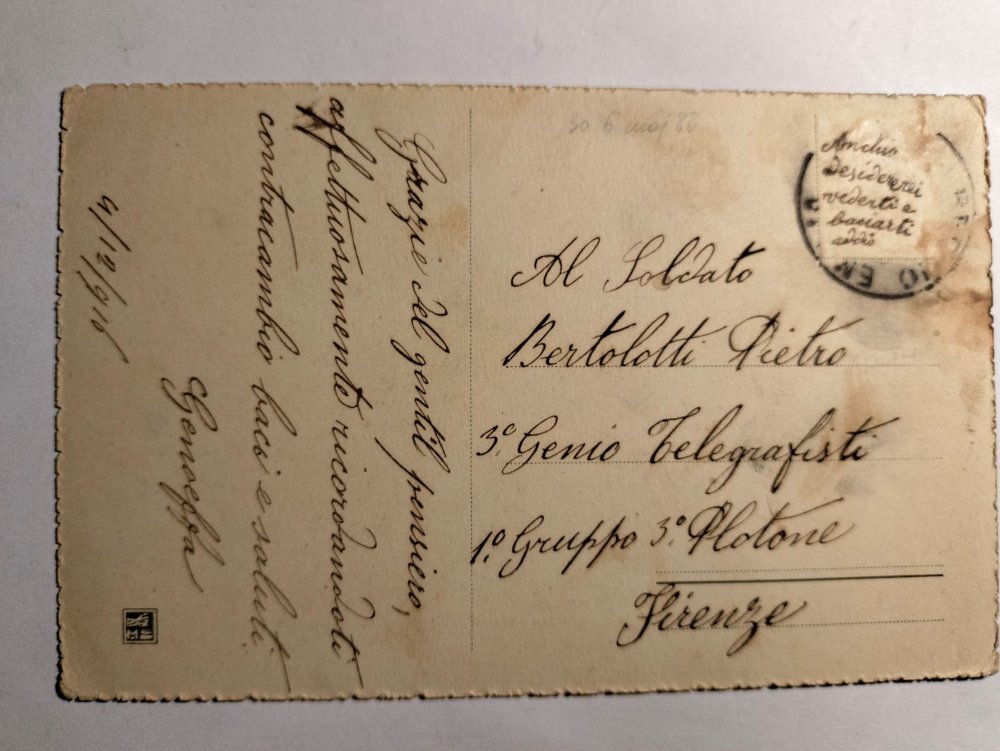 Grazie del gentil pensiero,
affettuosamente ricordandoti
contracambio baci e saluti.
Genoeffa
Anchio
desidererei
vederti e
baciarti
addio
Al Soldato
Bertolotti Pietro
3º Genio Telegrafisti
1º Gruppo 3º Plotone
Firenze